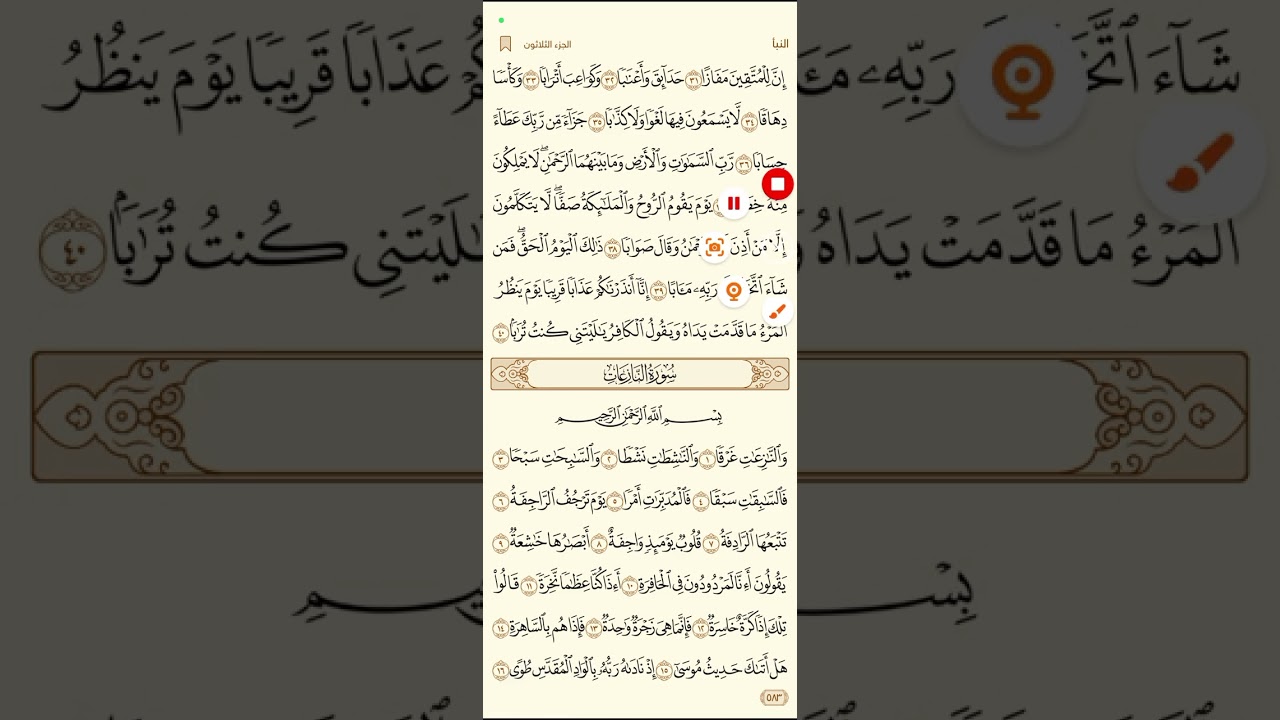 النبأ
الجزء الثلاثون
إِنَّ لِلْمُتَّقِينَ مَفَازًا ٣١ حَدَآئِقَ وَأَعْنَٰبًا ٣٢ وَكَوَاعِبَ أَتْرَابًا ٣٣ وَكَأْسًا
دِهَاقًا ٣٤ لَّا يَسْمَعُونَ فِيهَا لَغْوًا وَلَا كِذَّٰبًا ٣٥ جَزَآءً مِّن رَّبِّكَ عَطَآءً
حِسَابًا ٣٦ رَّبِّ ٱلسَّمَٰوَٰتِ وَٱلْأَرْضِ وَمَا بَيْنَهُمَا ٱلرَّحْمَٰنِۖ لَا يَمْلِكُونَ
مِنْهُ يَوْمَ يَقُومُ ٱلرُّوحُ وَٱلْمَلَٰٓئِكَةُ صَفًّاۖ لَّا يَتَكَلَّمُونَ
إِلَّا مَنْ أَذِنَ وَقَالَ صَوَابًا ٣٨ ذَٰلِكَ ٱلْيَوْمُ ٱلْحَقُّۖ فَمَن
شَآءَ رَبِّهِۦ مَـَٔابًا ٣٩ إِنَّآ أَنذَرْنَٰكُمْ عَذَابًا قَرِيبًا يَوْمَ يَنظُرُ
ٱلْمَرْءُ مَا قَدَّمَتْ يَدَاهُ وَيَقُولُ ٱلْكَافِرُ يَٰلَيْتَنِى كُنتُ تُرَٰبًۢا ٤٠
سُورَةُ النَّازِعَاتِ
بِسْمِ ٱللَّهِ ٱلرَّحْمَٰنِ ٱلرَّحِيمِ
وَٱلنَّٰزِعَٰتِ غَرْقًا ١ وَٱلنَّٰشِطَٰتِ نَشْطًا ٢ وَٱلسَّٰبِحَٰتِ سَبْحًا ٣
فَٱلسَّٰبِقَٰتِ سَبْقًا ٤ فَٱلْمُدَبِّرَٰتِ أَمْرًا ٥ يَوْمَ تَرْجُفُ ٱلرَّاجِفَةُ ٦
تَتْبَعُهَا ٱلرَّادِفَةُ ٧ قُلُوبٌ يَوْمَئِذٍ وَاجِفَةٌ ٨ أَبْصَٰرُهَا خَٰشِعَةٌ ٩
يَقُولُونَ أَءِنَّا لَمَرْدُودُونَ فِى ٱلْحَافِرَةِ ١٠ أَءِذَا كُنَّا عِظَٰمًا نَّخِرَةً ١١ قَالُوا۟
تِلْكَ إِذًا كَرَّةٌ خَاسِرَةٌ ١٢ فَإِنَّمَا هِىَ زَجْرَةٌ وَٰحِدَةٌ ١٣ فَإِذَا هُم بِٱلسَّاهِرَةِ ١٤
هَلْ أَتَىٰكَ حَدِيثُ مُوسَىٰٓ ١٥ إِذْ نَادَىٰهُ رَبُّهُۥ بِٱلْوَادِ ٱلْمُقَدَّسِ طُوًى ١٦
٥٨٣